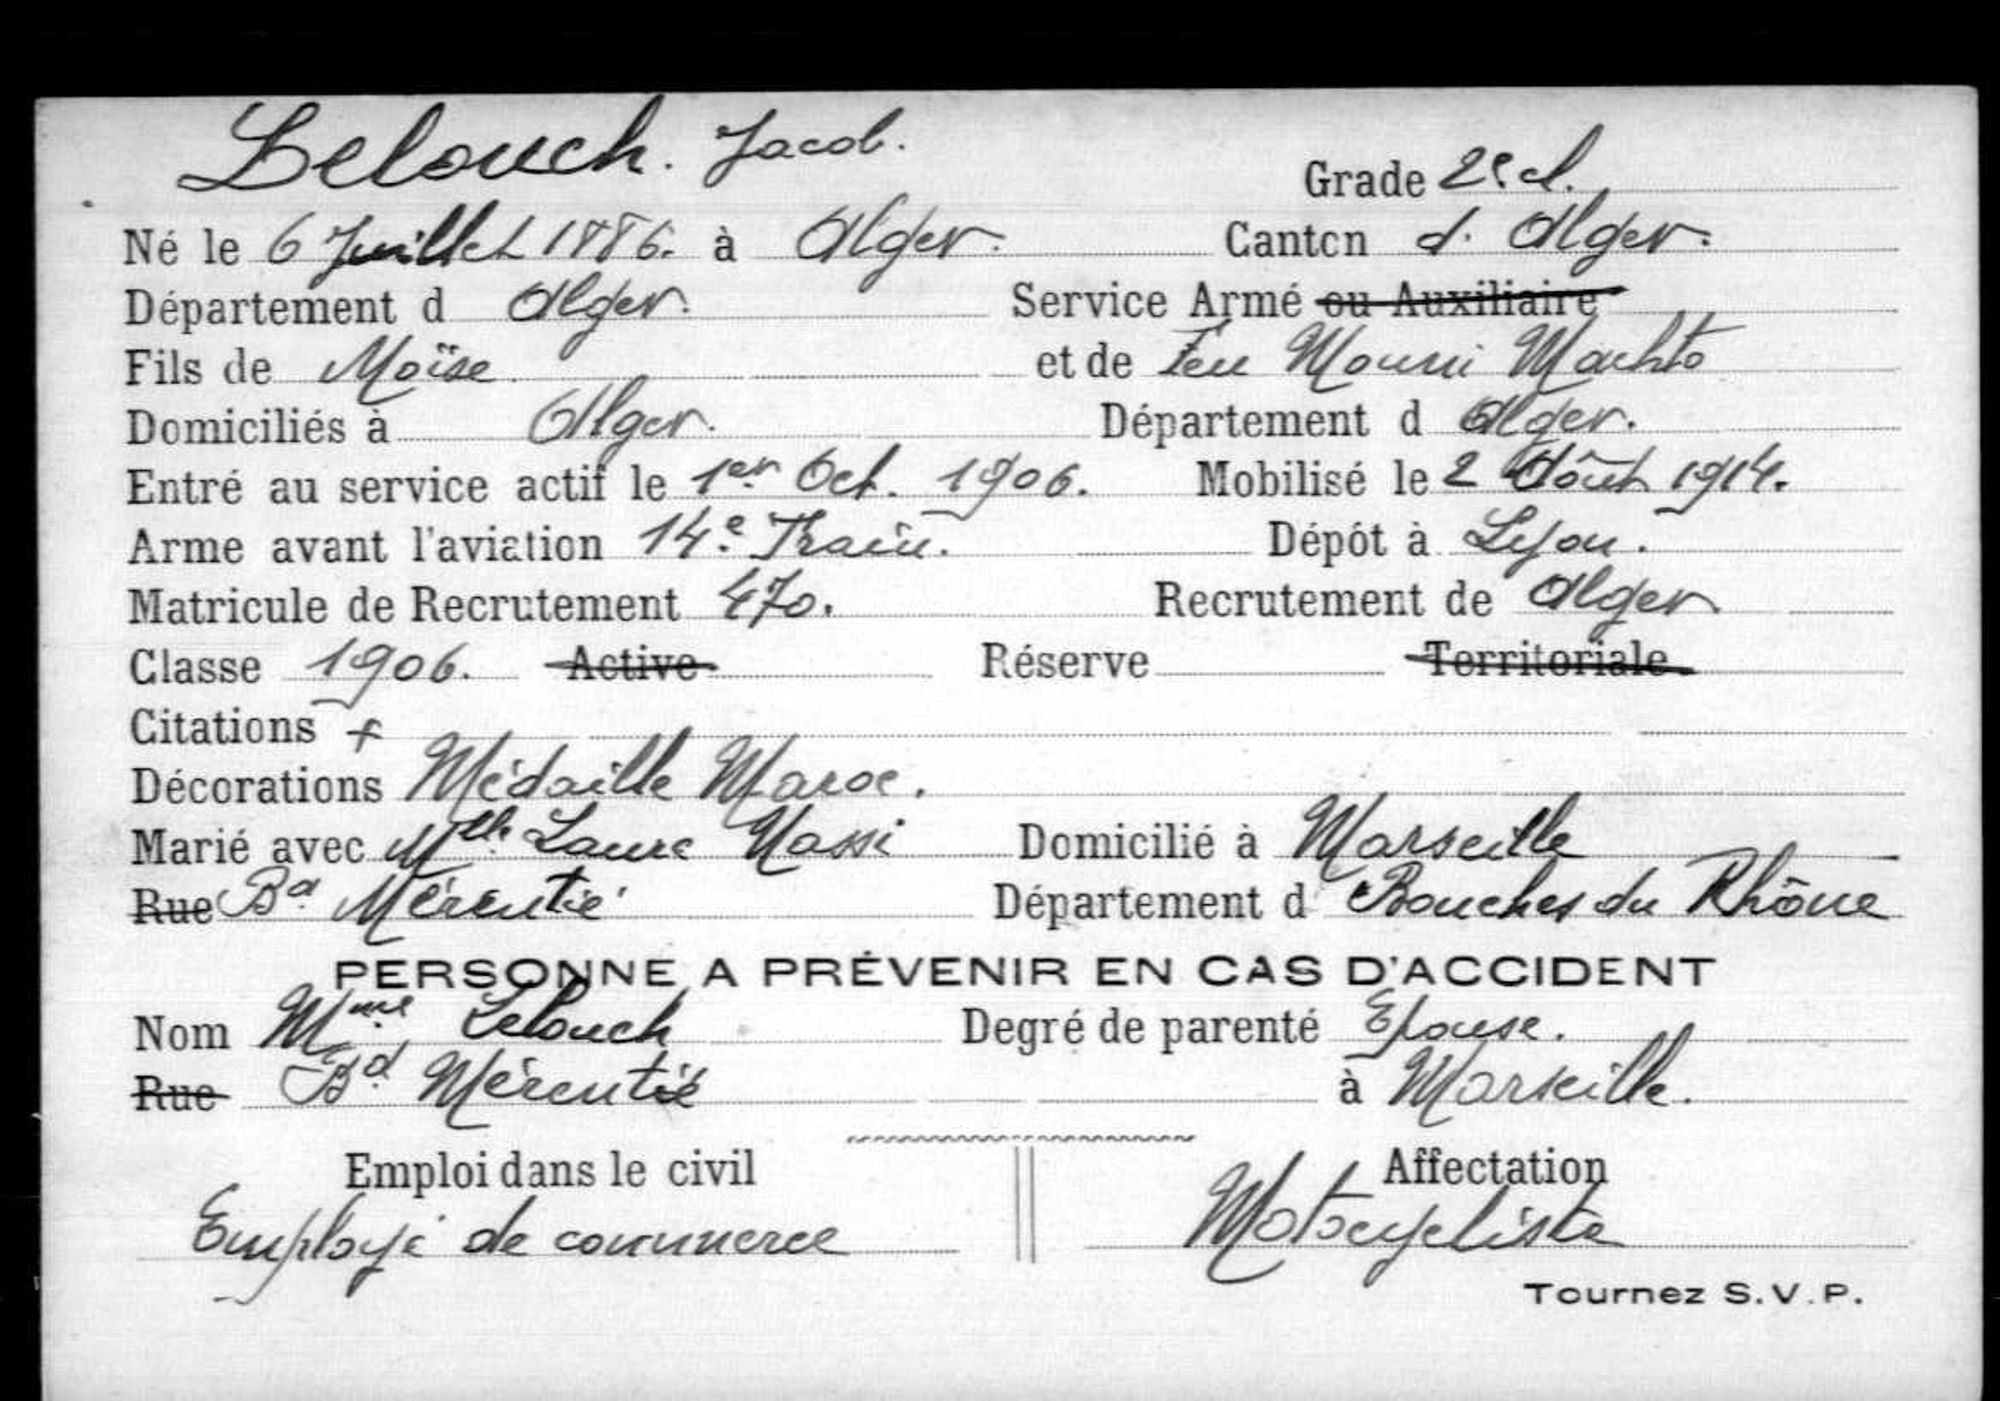 Lelouch. Jacob.
Grade 2e cl.
Né le 6 Juillet 1886. à Alger. Canton d. Alger.
Département d Alger. Service Armé ou Auxiliaire
Fils de Moïse et de feu Mouni
Domiciliés à Alger. Département d Alger.
Entré au service actif le 1er Oct. 1906. Mobilisé le 2 Août 1914.
Arme avant l'aviation 14e Train. Dépôt à Lyon.
Matricule de Recrutement 470. Recrutement de Alger
Classe 1906. Active Réserve Territoriale
Citations
Décorations Médaille Maroc.
Marié avec Mlle Laure Nassi Domicilié à Marseille
Rue Bd Mérentié Département d Bouches du Rhône
PERSONNE A PRÉVENIR EN CAS D'ACCIDENT
Nom Mme Lelouch Degré de parenté Epouse.
Rue Bd Mérentié à Marseille.
Emploi dans le civil
Employé de commerce
Affectation
Motocycliste
Tournez S.V.P.